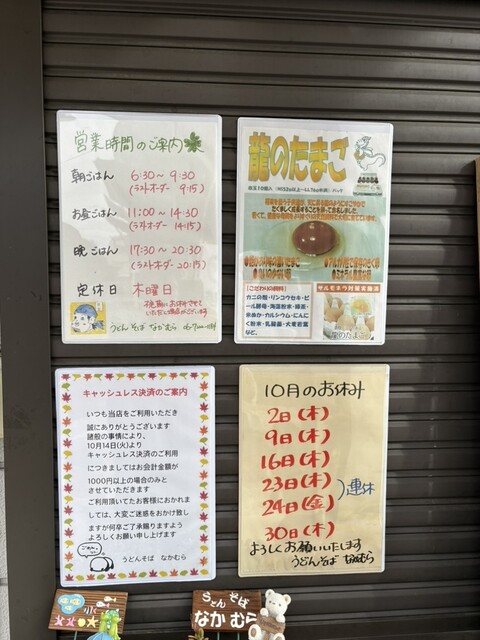 営業時間のご案内
朝ごはん 6:30~9:30
(ラストオーダー 9:15)
お昼ごはん 11:00~14:30
(ラストオーダー 14:15)
晩ごはん 17:30~20:30
(ラストオーダー 20:15)
定休日 木曜日
うどんそば なかむら
龍のたまご
サルモネラ対策実施済
【こだわりの飼料】
カニの殻・リンコウセキ・ビ
ール酵母・海藻粉末・緑茶・
米ぬか・カルシウム・にんに
く粉末・乳酸菌・大麦若葉
など。
龍のたまご
キャッシュレス決済のご案内
いつも当店をご利用いただき
誠にありがとうございます
諸般の事情により、
10月14日(火)より
キャッシュレス決済のご利用
につきましてはお会計金額が
1000円以上の場合のみと
させていただきます
ご利用頂いてたお客様におかれま
しては、大変ご迷惑をおかけ致し
ますが何卒ご了承賜りますよう
よろしくお願い申し上げます
うどんそば なかむら
10月のお休み
2日(木)
9日(木)
16日(木)
23日(木)
24日(金)
連休
30日(木)
よろしくお願いいたします
うどんそば なかむら
うどん そば
なかむら